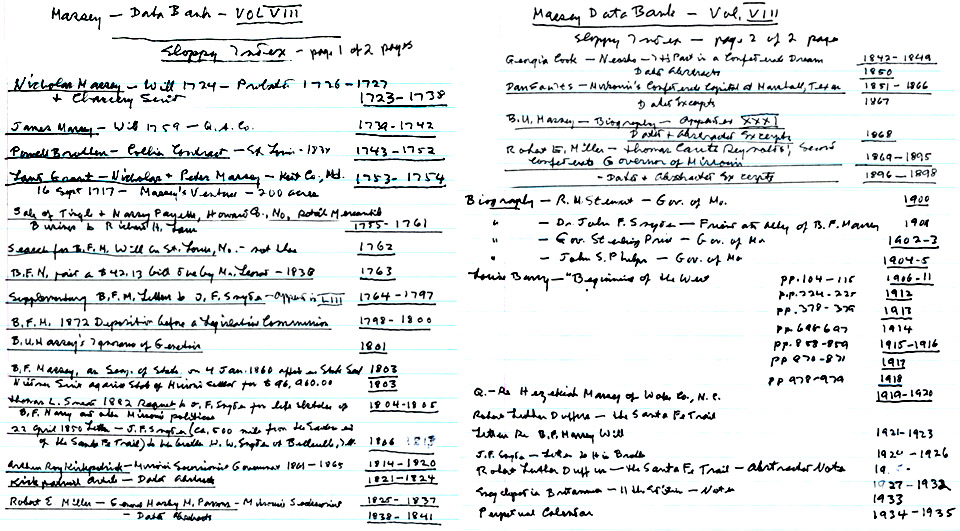 Massey — Data Bank — VOL VIII
Sloppy Index — page 1 of 2 pages
Nicholas Massey — Will 1724 — Probate 1726-1727
+ Chancery Suit 1723-1738
James Massey — Will 1759 — Q.A. Co. 1739-1742
Powell Brollen — Collier Contract — St. Louis - 1743-1752
Land Grant — Nicholas + Peter Massey — Kent Co., Md. 1753-1754
16 Sept 1717 — Massey's Venture — 200 acres
Sale of Tingle + Massey Payette, Howard Co., Mo, Retail Mercantile
Business to Richard H. 1755-1761
Search for B.F.M. Will in St. Louis, Mo. — not there 1762
B.F.M. paid a $42.13 bill 1838 1763
Supplementary B.F.M. Letters to J. F. Snyder — Appendix LIII 1764-1797
B.F.M. 1872 Deposition before a Legislative Commission 1798-1800
B.U. Massey's Ignorance of 1801
B.F. Massey, as Secy. of State on 4 Jan. 1860 State Seal 1803
Suit against State of Missouri for $96,960.00 1803
Thomas L. Snead 1882 Request to J. F. Snyder for life sketches of 1804-1805
B.F. Massey and other Missouri politicians
22 April 1850 Letter — J.F. Snyder (Ca. 500 miles from the
of the Santa Fe Trail) to his brother W. W. Snyder of Belleville, Ill. 1806 1813
Arthur Roy Kirkpatrick — Missouri Secessionist Government 1861-1865 1814-1820
Kirkpatrick Article — Data Abstracts 1821-1824
Robert E Miller — General Mosby M. Parsons — Missouri's Secessionist 1825-1837
— Data Abstracts 1838-1841
Massey Data Bank — Vol. VIII
Sloppy Index — page 2 of 2 pages
Georgia Cook — Neosho — It's Part in a Confederate Dream 1842-1849
Data Abstracts 1850
— Missouri's Confederate Capitol at Marshall, Texas 1851-1866
Data Excerpts 1867
B.U. Massey — Biography — Appendix XXXI
Data + Abstracted Excerpts 1868
Robert E. Miller — Thomas Caute Reynolds, Second 1869-1895
Confederate Governor of Missouri
— Data + Abstracted Excerpts 1896-1898
Biography — R. M. Stewart — Gov. of Mo. 1900
" — Dr. John F. Snyder — Friend and ally of B.F. Massey 1901
" — Gov. Sterling Price — Gov. of Mo 1902-3
" — John S. Phelps — Gov. of Mo 1904-5
Louise Barry — "Beginning of the West pp. 104-115 1906-11
p.p. 224-225 1912
pp. 378-379 1913
pp. 696-697 1914
pp. 858-859 1915-1916
pp 870-871 1917
pp 978-979 1918
Q. - Re Hezekiah Massey of Wake Co., N.C. 1919-1920
Robert Luther Duffus — the Santa Fe Trail
Letter Re B.F. Massey Will 1921-1923
J.F. Snyder — Letter to His Brother 1924-1926
Robert Luther Duffus — the Santa Fe Trail — Abstracted Notes 19
Encyclopedia Britannica — 11th Edition — Notes 1927-1932
1933
Perpetual Calendar 1934-1935